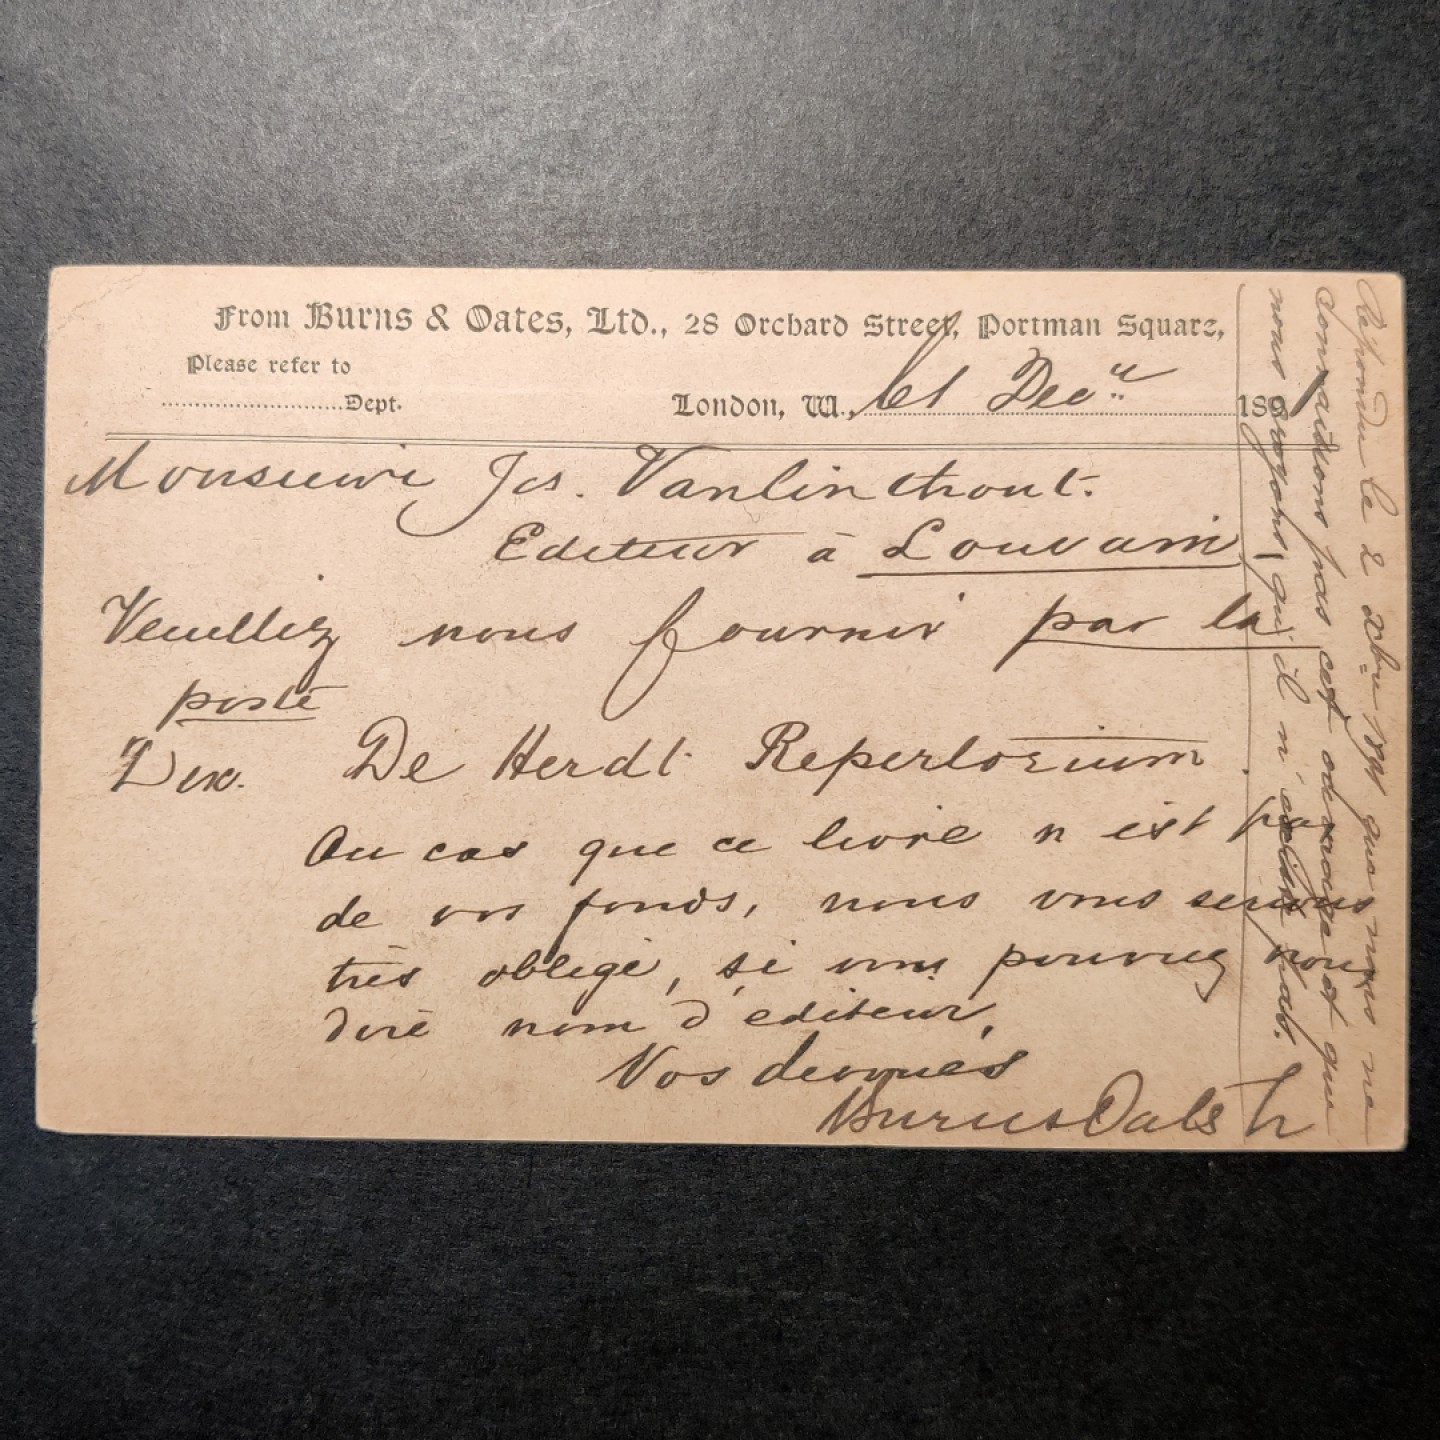 From Burns & Oates, Ltd., 28 Orchard Street, Portman Square,
Please refer to
Dept.
London, W., le 1 Dec 1891
Monsieur Jos. Vanlinthout.
Editeur à Louvain
Veuillez nous fournir par la
poste
De Herdt Repertorium.
Au cas que ce livre n est pas
de vos fonds, nous vous serions
très obligé, si vous pouvez nous
dire nom d'editeur,
Vos devoués
Burns Oates
Répondu le 2 Xbre 1891 que nous ne
connaissons pas cet ouvrage et que
nous croyons, qu'il n'existe pas.